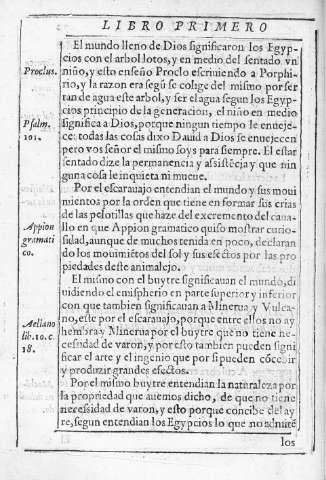 LIBRO PRIMERO
El mundo lleno de Dios significaron los Egyp-
cios con el arbol lotos, y en medio del sentado vn
Proclus.
niño, y esto enseño Proclo escriuiendo a Porphi-
rio, y la razon era segũ se colige del mismo por ser
tan de agua este arbol, y ser el agua segun los Egyp
cios principio de la generacion, el niño en medio
Psalm.
significa a Dios, porque ningun tiempo le enueje-
101.
ce: todas las cosas dixo Dauid a Dios se enuejecen
pero vos señor el mismo soys para siempre. El estar
sentado dize la permanencia y assistẽcia y que nin
guna cosa le inquieta ni mueue.
Por el escarauajo entendian el mundo y sus moui
mientos por la orden que tiene en formar sus crias
de las pelotillas que haze del excremento del caua-
Appion
llo en que Appion gramatico quiso mostrar curio-
gramati
sidad, aunque de muchos tenida en poco, declaran
co.
do los mouimiẽtos del sol y sus efectos por las pro
piedades deste animalejo.
El mismo con el buytre significauan el mundo, di
uidiendo el emispherio en parte superior y inferior
con que tambien significauan a Minerua y Vulca-
Aeliano
no, este por el escarauajo, porque entre ellos no ay
lib. 10. c.
hembra y Minerua por el buytre que no tiene ne-
18.
cessidad de varon, y por esto tambien pueden signi
ficar el arte y el ingenio que por si pueden cõcebir
y produzir grandes efectos.
Por el mismo buytre entendian la naturaleza por
la propriedad que auemos dicho, de que no tiene
necessidad de varon, y esto porque concibe del ay
re, segun entendian los Egypcios lo que no admitẽ
los